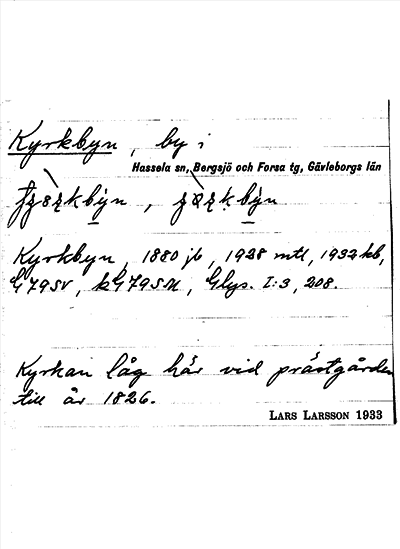 Kyrkbyn, by i
Hassela sn, Bergsjö och Forsa tg, Gävleborgs län
Kyrkbyn, 1880 jb, 1928 mtl, 1932 kb,
G79SV, kG79SM, Glys. I:3, 208.
Kyrkan låg här vid prästgården
till år 1826.
LARS LARSSON 1933